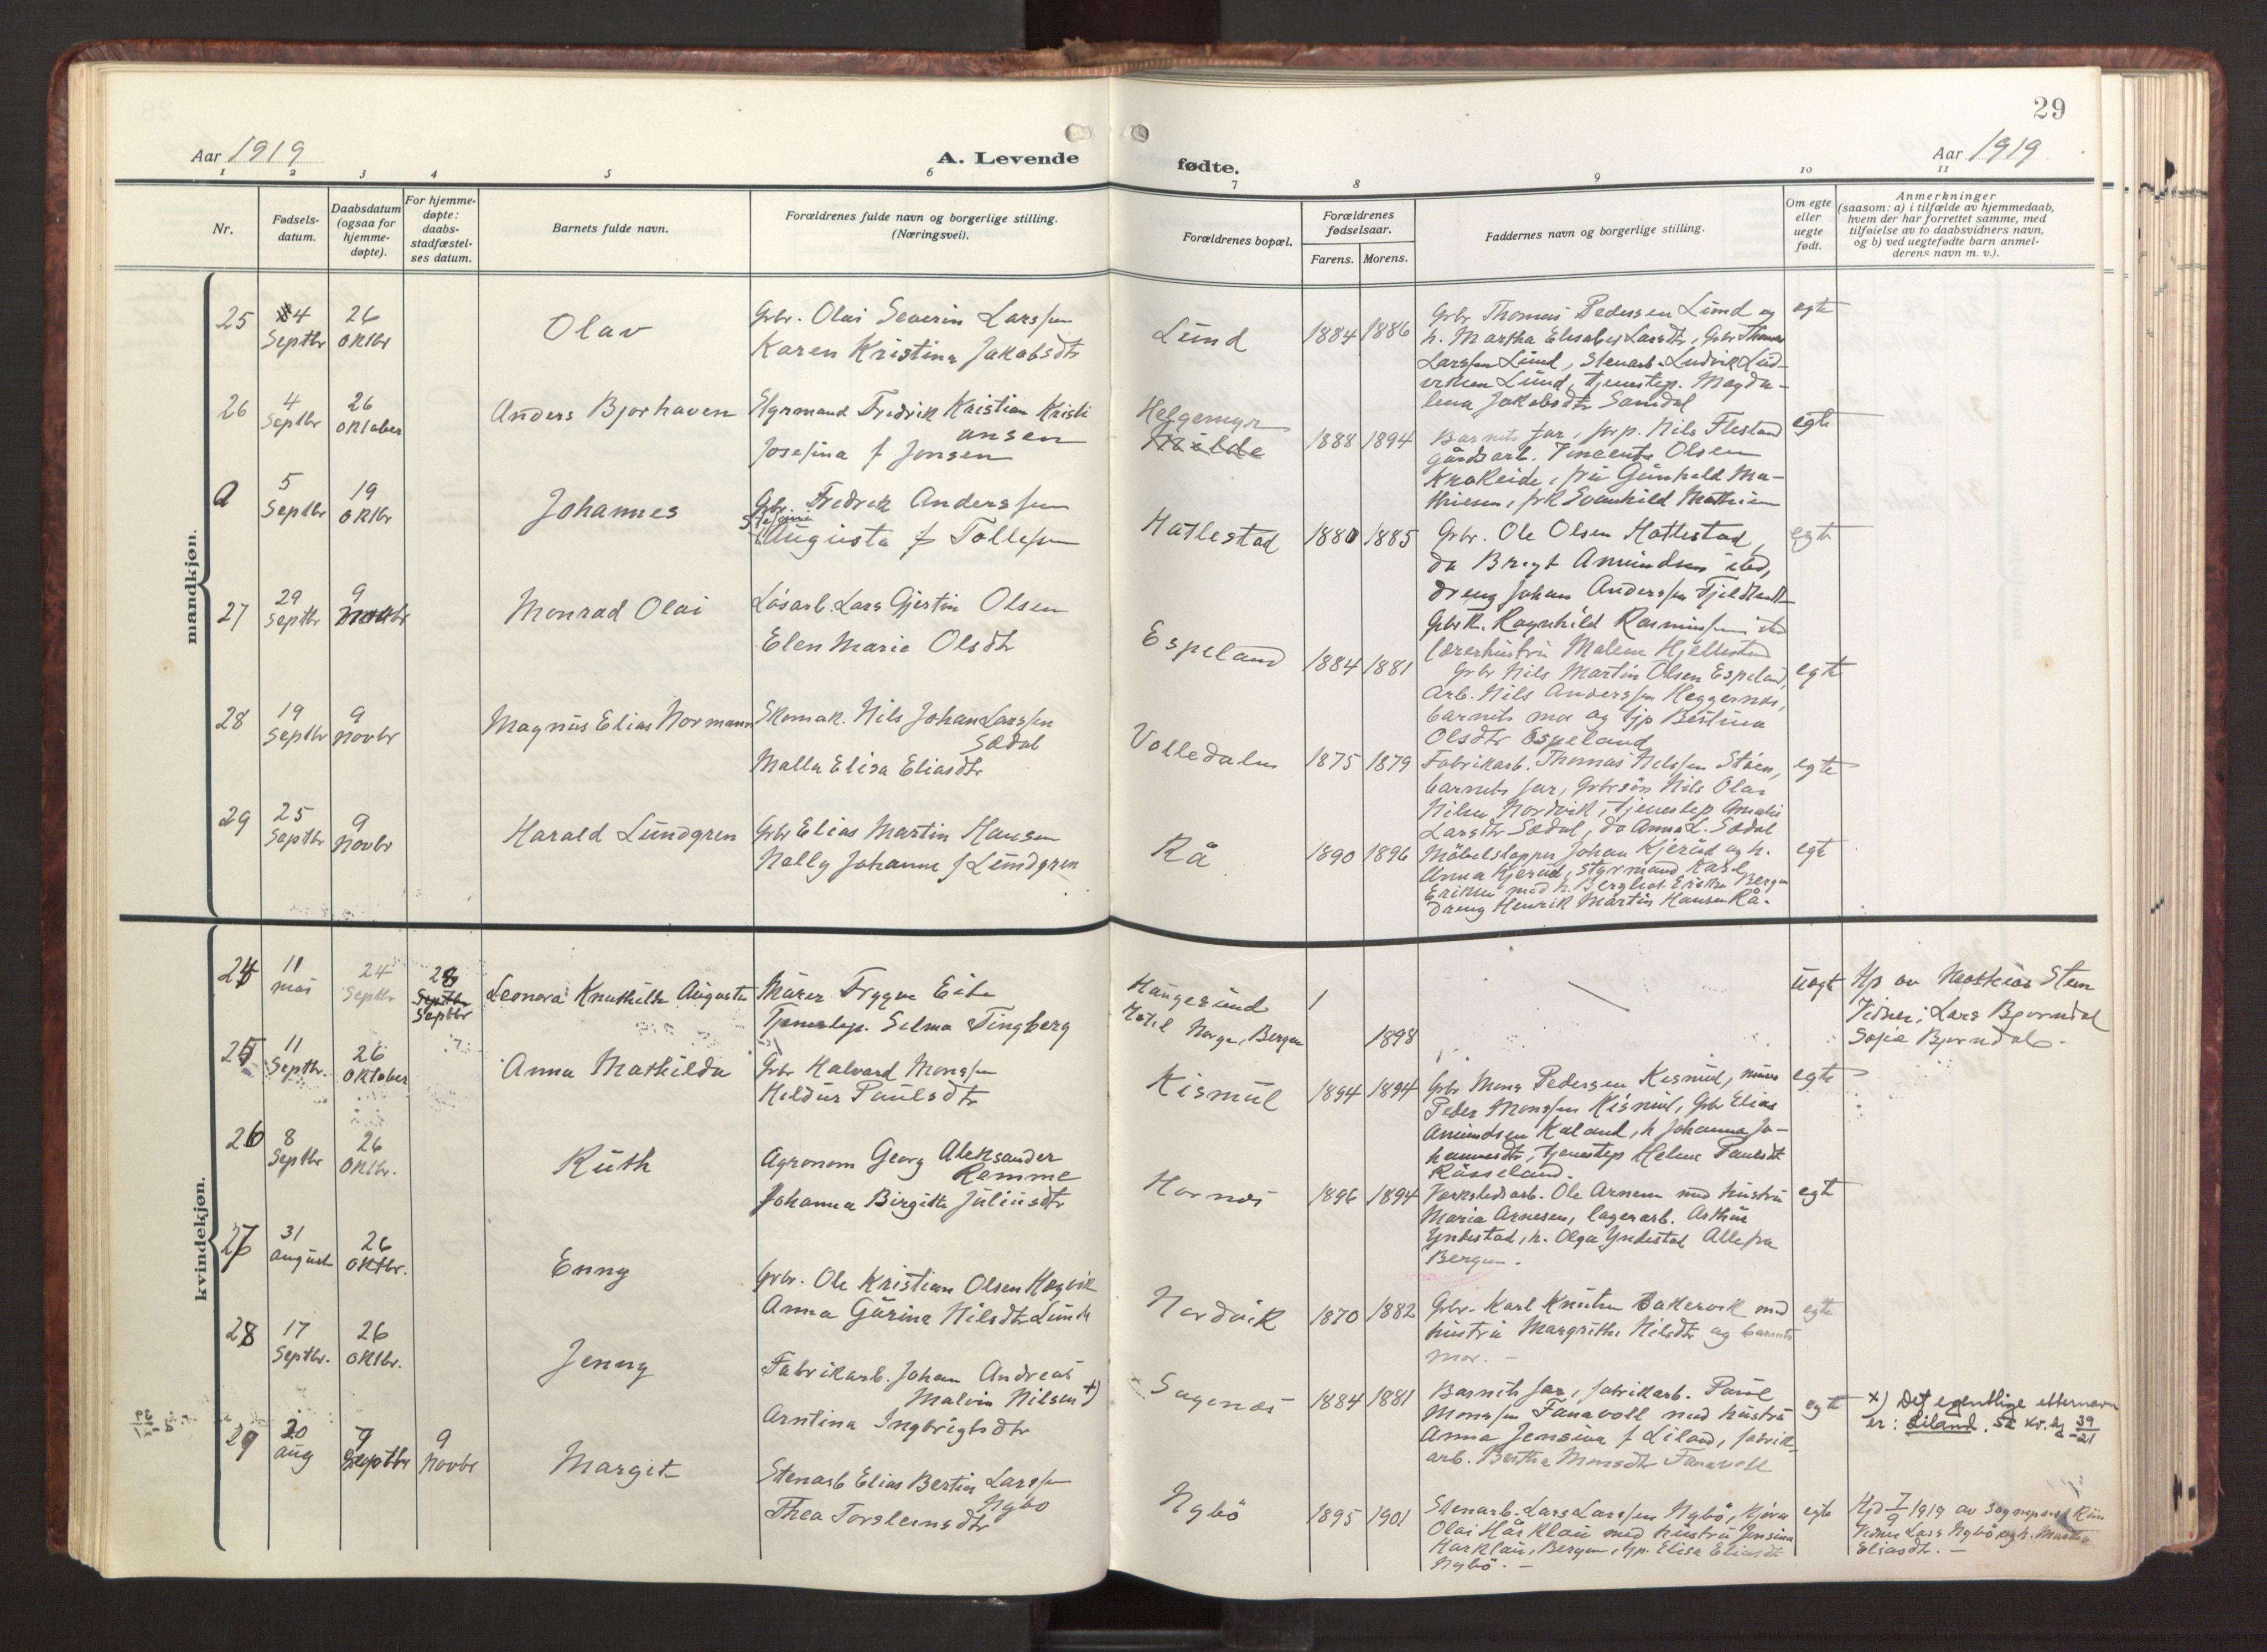 29
Aar 1919
A. Levende
fødte.
Aar 1919
1 2 3 4 5 6 7 8 9 10 11
Nr.
Fødsels-
datum.
Daabsdatum
(ogsaa for
hjemme-
døpte).
For hjemme-
døpte:
daabs-
stadfæstel-
ses datum.
Barnets fulde navn.
Forældrenes fulde navn og borgerlige stilling.
(Næringsvei).
Forældrenes bopæl.
Forældrenes
fødselsaar.
Farens. Morens.
Faddernes navn og borgerlige stilling.
Om egte
eller
uegte
født.
Anmerkninger
(saasom: a) i tilfælde av hjemmedaab,
hvem der har forrettet samme, med
tilføielse av to daabsvidners navn,
og b) ved uegtefødte barn anmel-
derens navn m. v.).
mandkjøn.
25
4
Septbr
26
Oktbr
Olav
Grbr. Olai Severin Larssen
Karen Kristina Jakobsdtr
Lund
1884 1886
Grbr Thomas Pedersen Lund og
h. Martha Elisabet Larsdtr, Grbr Thomas
Larssen Lund, Stenarb. Ludvik Lud-
viksen Lund, tjenestep. Magda-
lena Jakobsdtr Samdal
egte
26
4
Septbr
26
Oktober
Anders Bjorhaven
Styrmand Fredrik Kristian Kristi
ansen
Josefina f Jonsen
Helgemyr
Milde
1888 1894
Barnets far, Nils Flestad
gårdsarb. Vincents Olsen
Krokeide, fru Gunhild Ma-
thiesen, frk Svanhild Mathisen
egte
a
5
Septbr
19
Oktbr
Johannes
Grbr. Fredrik Anderssen
Stefine
Augusta f Tollessen
Hatlestad
1880 1885
Grbr. Ole Olsen Hatlestad,
do Bryt Amundsen ibd,
dreng Johan Anderssen
Grbrk. Ragnhild Rasmussen ibd
lærerhustru Malene Hjellestad
egte
27
29
Septbr
9
Novbr
Monrad Olai
Løsarb. Lars Gjertin Olsen
Elen Marie Olsdtr
Espeland
1884 1881
Grbr Nils Martin Olsen Espeland,
Arb. Nils Anderssen Heggernes,
barnets mor og tjp Bertina
Olsdtr Espeland
egte
28
19
Septbr
9
Novbr
Magnus Elias Normann
Skomak. Nils Johan Larssen
Sædal
Malla Elisa Eliasdtr
Volledalen
1875 1879
Fabrikarb. Thomas Nilssen Støen,
barnets far, Grbrsøn Nils Olai
Nilsen Nordvik, tjenestep Amalie
Larsdtr Sædal, do Anna L. Sædal
egte
29
25
Septbr
9
Novbr
Harald Lundgren
Grbr Elias Martin Hansen
Nelly Johanne f Lundgren
Rå
1890 1896
Møbelstapper Johan Kjerud og h.
Anna Kjerud, styrmand Karl
Eriksen med h. Bergliot Eriksen Bergen
Dreng Henrik Martin Hansen Rå.
egte
kvindekjøn.
24
11
mai
24
Septbr
28
Septbr
Septbr
Leonora Knuthilde Augusta
Murer Trygve Eide
Tjenestep. Selma Tingberg
Haugesund
Hotel Norge, Bergen
1898
uegt
Hp av Mathias Sten
Vidner; Lars Bjorndal
Sofie Bjorndal.
25
11
Septbr.
26
Oktober
Anna Mathilda
Grbr Halvard Monssen
Hildur Paulsdtr
Kismul
1894 1894
Grbr Mons Pedersen Kismul, murer
Peder Monssen Kismul, Grbr Elias
Amundsen Kaland, h Johanna Jo-
hannesdtr, tjenestep Helene Paulsdtr
Råsseland.
egte
26
8
Septbr
26
Oktbr.
Ruth
Agronom Georg Aleksander
Remme
Johanna Birgitte Juliusdtr
Hornes
1896 1894
Verkstedsarb. Ole Arnesen med hustru
Maria Arnesen, lagerarb. Arthur
Yndestad, h. Olga Yndestad Alle fra
Bergen.
egte
27
31
August
26
Oktbr.
Enny
Grbr. Ole Kristian Olsen Høgvik
Anna Gurine Nilsdtr Lunde
Nordvik
1870 1882
Grbr. Karl Knutsen Bakervik med
hustru Margrethe Nilsdtr og barnets
mor. –
egte
28
17
Septbr.
26
Oktbr.
Jenny
Fabrikarb. Johan Andreas
Malvin Nilsen x)
Arntina Ingbrigtsdtr
Sagenes
1884 1881
Barnets far, fabrikarb. Paul
Monssen Fanavoll med hustru
Anna Jensina f Liland, fabrik-
arb. Bertha Monsdtr Fanavoll
egte
x) Det egentlige etternavn
er: Liland, se kr. 39/21
29
20
Aug
7
Septbr
9
Novbr
Margit
Stenarb Elias Bertin Larssen
Nybø
Thea Torsteinsdtr
Nybö
1895 1901
Stenarb. Lars Larssen Nybö,
Olai Hårklau med hustru Jensina
Harklau, Bergen, tjp. Elisa Eliasdtr
Nybö. –
egte
Hjd 7/9 1919 av sogneprest
Vidner Lars Nybö og h. Martha
Eliasdtr. –